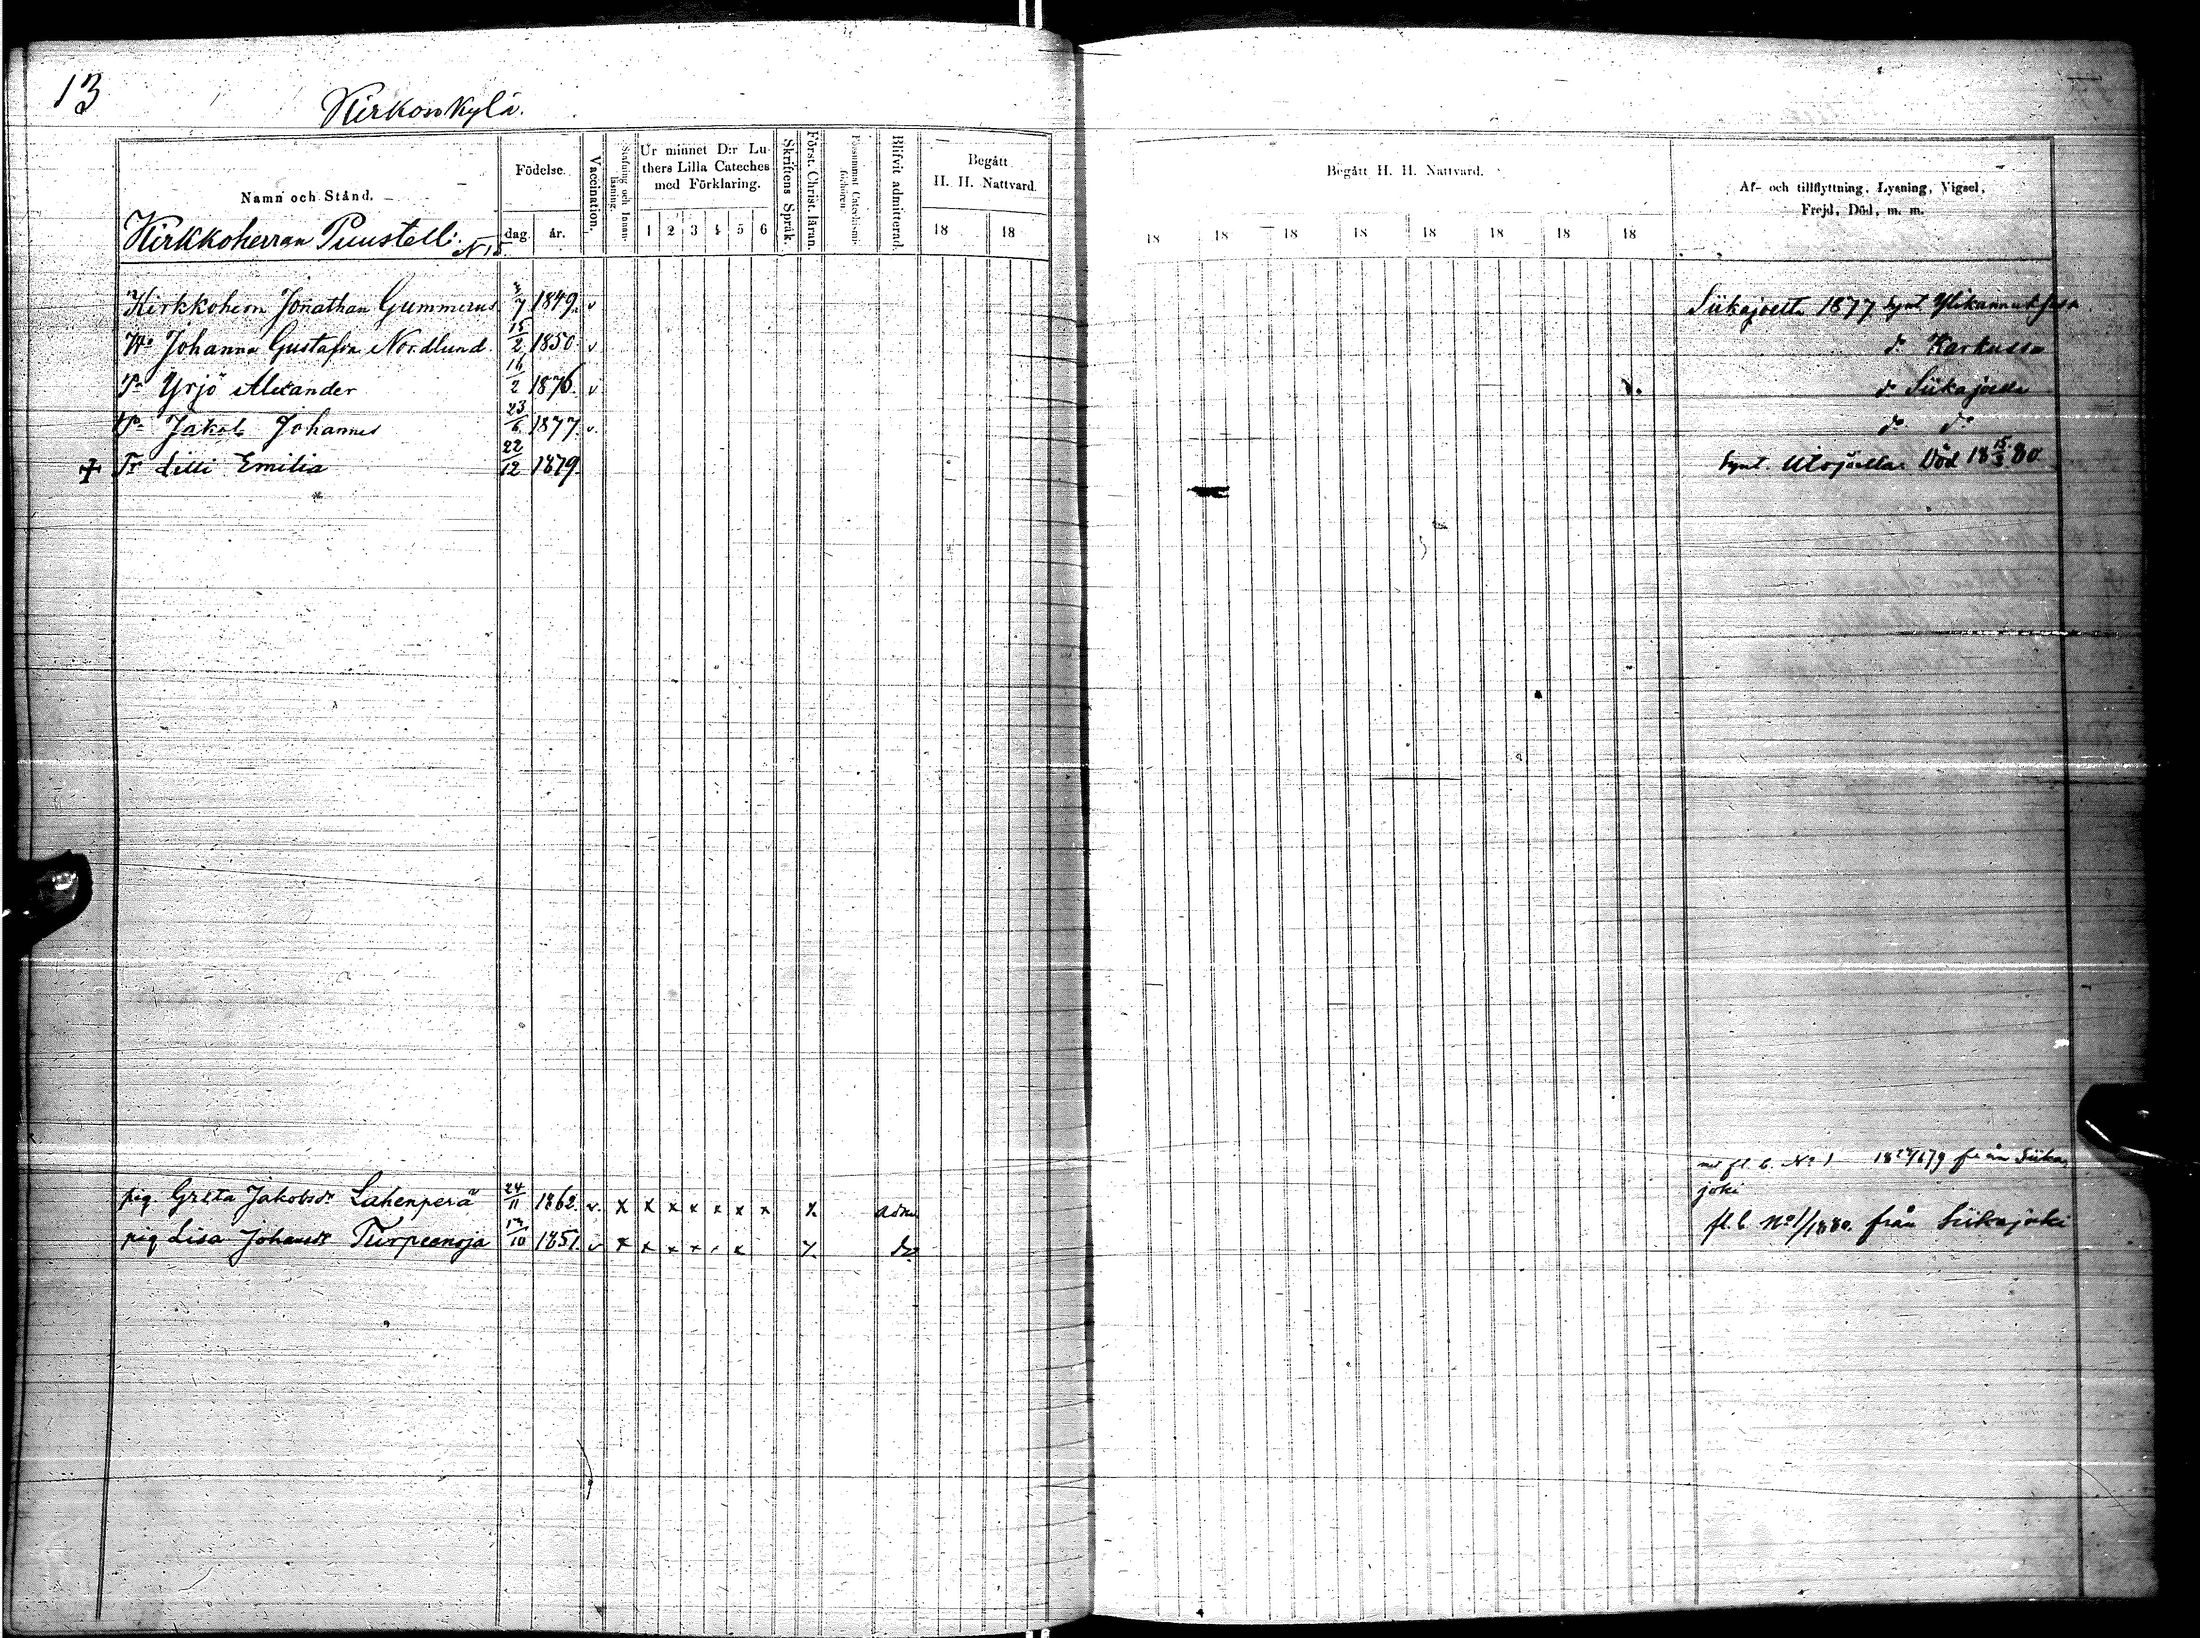 13
Kirkonkylä.
Namn och Stånd.
Födelse.
dag. år.
Vaccination.
Stafning och Innanläsning.
Ur minnet D:r Luthers Lilla Cateches med Förklaring.
1 2 3 4 5 6
Skriftens Språk.
Först. Christ. läran.
Försummat Catechismiförhören.
Blifvit admitterad.
Begått H. H. Nattvard.
18 18
Begått H. H. Nattvard.
18 18 18 18 18 18 18 18
Af- och tillflyttning, Lysning, Vigsel, Frejd, Död, m. m.
Kirkkoherran Puustelli. N 15.
Kirkkoherra Jonathan Gummerus 3/7 1849. v Siikajoelta 1877 synt. Ylikannuksessa
Wo Johanna Gustafva Nordlund 15/2 1850. v do Karkussa
Pa Yrjö Alexander 16/2 1876. v do Siikajoella
Pa Jakob Johannes 23/6 1877. v. do do
+ Tr Lilli Emilia 22/12 1879. synt. Död 18 15/3 80
pig. Greta Jakobsdr Lahenperä 24/11 1862. v. x x x x x x x x adm. fl. b. No 1 från Siikajoki
pig Lisa Johansdr Turpeenoja 1851. v x x x x x x do fl. b. No 1/1880. från Siikajoki